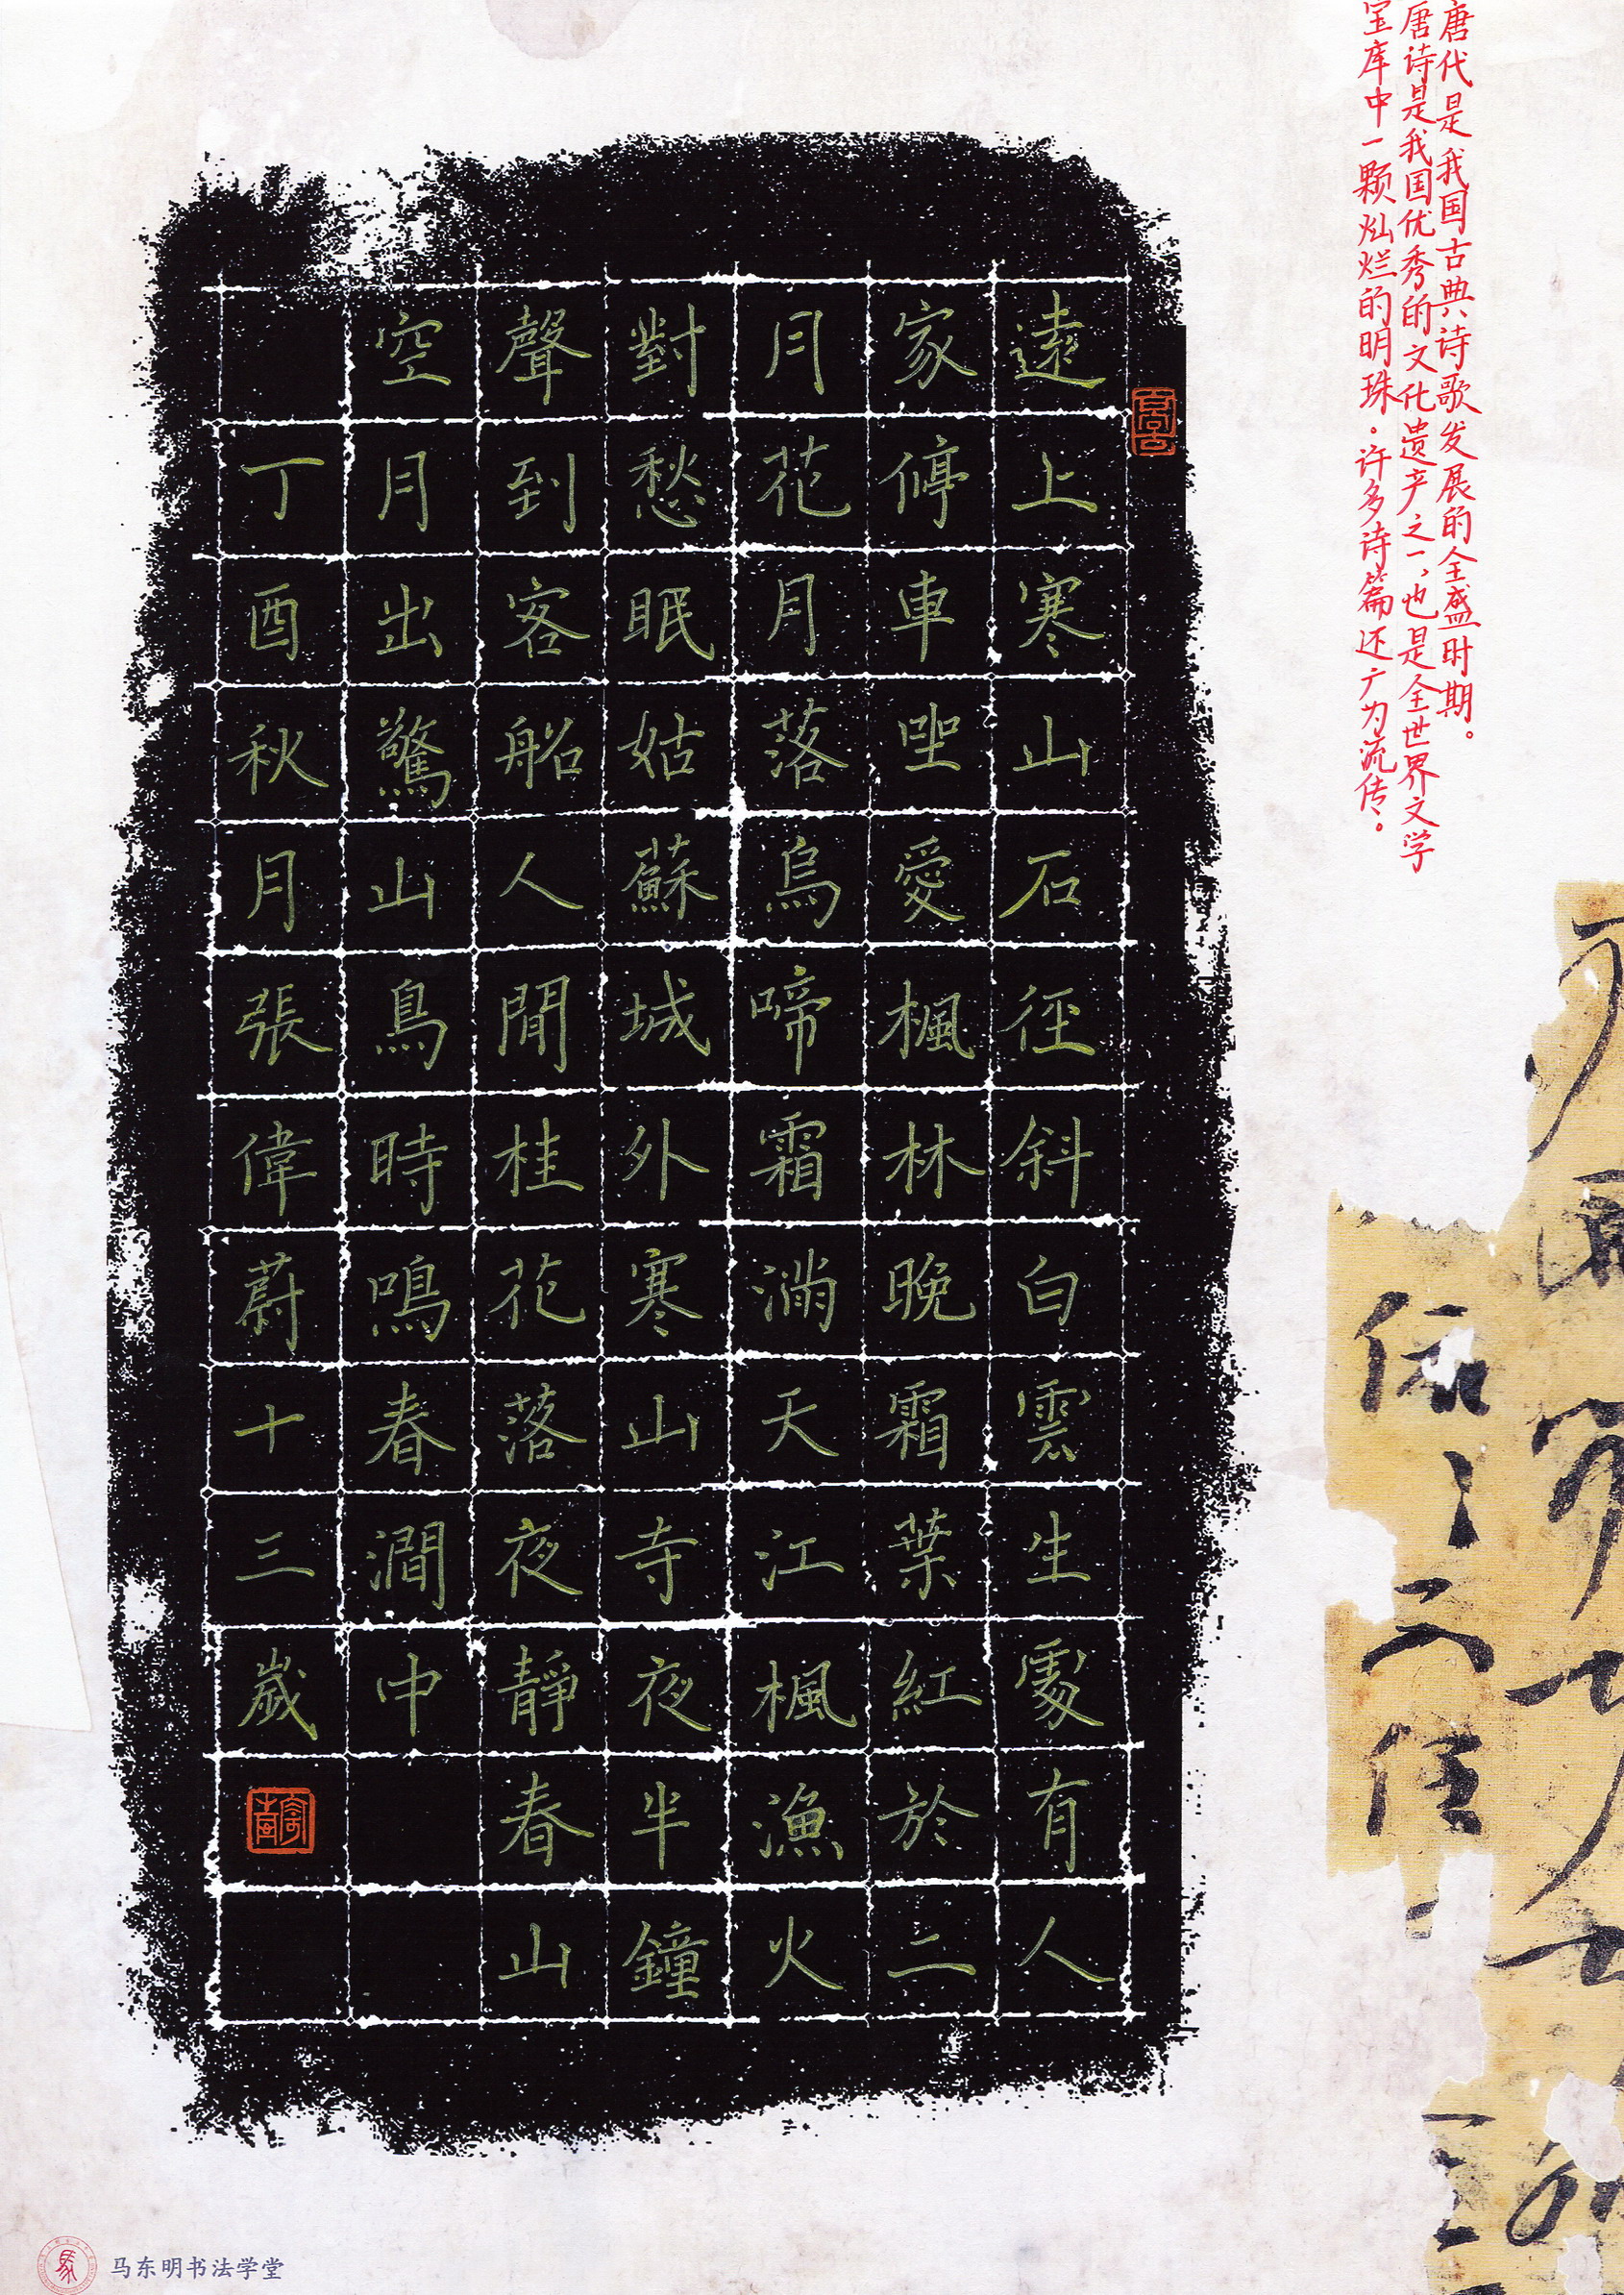 唐代是我国古典诗歌发展的全盛时期。
唐诗是我国优秀的文化遗产之一,也是全世界文学
宝库中一颗灿烂的明珠。许多诗篇还广为流传。
遠上寒山石徑斜白雲生處有人
家停車坐愛楓林晚霜葉紅於二
月花月落烏啼霜滿天江楓漁火
對愁眠姑蘇城外寒山寺夜半鐘
聲到客船人閒桂花落夜靜春山
空月出驚山鳥時鳴春澗中
丁酉秋月張偉蔚十三歲
马东明书法学堂